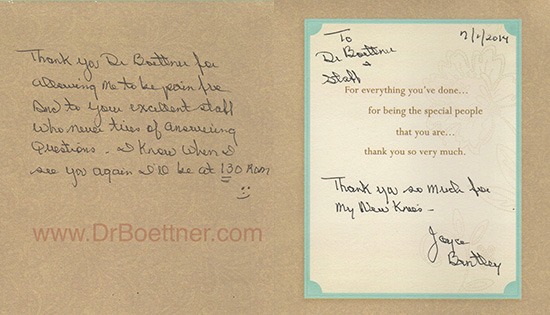 Thank you Dr Boettner for
allowing me to be pain free
and to your excellent staff
who never tires of answering
questions - I know when I
see you again I'll be at 130 Rom
www.DrBoettner.com
To
Dr Boettner
&
Staff
7/1/2014
For everything you've done...
for being the special people
that you are...
thank you so very much.
Thank you so much for
my New Knee's -
Joyce